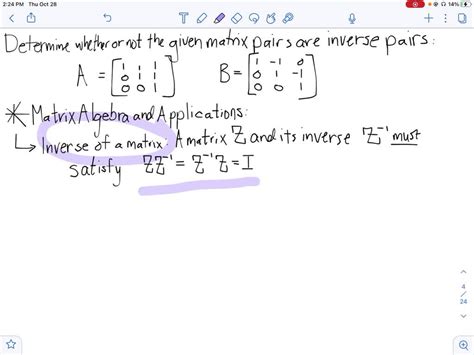 2:24 PM Thu Oct 28
14%
Determine whether or not the given matrix pairs are inverse pairs:
A = [1 1 1; 0 1 1; 0 0 1] B = [1 -1 0; 0 1 -1; 0 0 1]
* Matrix Algebra and Applications:
↳ Inverse of a matrix: A matrix Z and its inverse Z⁻¹ must
satisfy ZZ⁻¹ = Z⁻¹Z = I
4
24